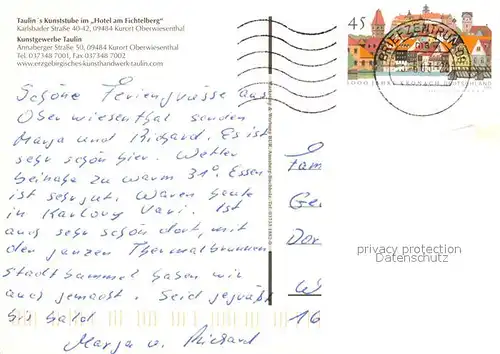 Taulin's Kunststube im „Hotel am Fichtelberg"
Karlsbader Straße 40-42, 09484 Kurort Oberwiesenthal
Kunstgewerbe Taulin
Annaberger Straße 50, 09484 Kurort Oberwiesenthal
Tel. 037348 7001, Fax 037348 7002
www.erzgebirgisches-kunsthandwerk-taulin.com
45
BRIEFZENTRUM
1000 JAHRE KRONACH DEUTSCHLAND
Schöne Feriengrüsse aus
Oberwiesenthal senden
Marga und Richard. Es ist
sehr schön hier. Wetter
beinahe zu warm 31°. Essen
ist sehr gut. Waren heute
in Karlovy Vari. Ist
auch sehr schön dort, mit
den ganzen Thermalbrunnen
Stadtbummel haben wir
auch gemacht. Seid gegrüßt
bis bald
Marga u. Richard
Fam
Ge
Dor
16
privacy protection
Datenschutz